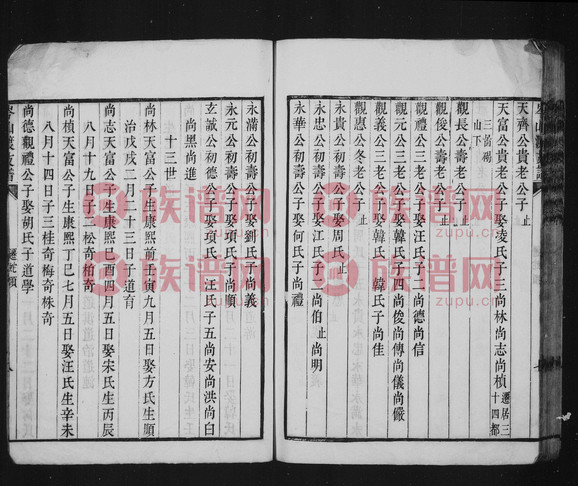 天齊公貴老公子止
天富公貴老公子娶凌氏子三尚林尚志尚楨遷居三十四都
三笛碣山下
觀長公壽老公子止
觀俊公壽老公子止
觀禮公三老公子娶汪氏子二尚德尚信
觀元公三老公子娶韓氏子四尚俊尚傳尚儀尚儼
觀義公三老公子娶韓氏子尚佳
觀惠公冬老公子止
永貴公初壽公子娶周氏止
永忠公初壽公子娶江氏子二尚伯止尚明
永華公初壽公子娶何氏子尚禮
永滿公初壽公子娶劉氏子尚義
永元公初壽公子娶項氏子尚順
玄誠公初德公子娶項氏汪氏子五尚安尚洪尚白
尚黑尚進
十三世
尚林天富公子生康熙前壬寅九月五日娶方氏生順
治戊戌二月二十三日子道育
尚志天富公子生康熙己酉四月五日娶宋氏生丙辰
八月十九日子二松奇柏奇
尚楨天富公子生康熙丁巳七月五日娶汪氏生辛未
八月十四日子三桂奇梅奇株奇
尚德觀禮公子娶胡氏子道學
族谱网
zupu.cn